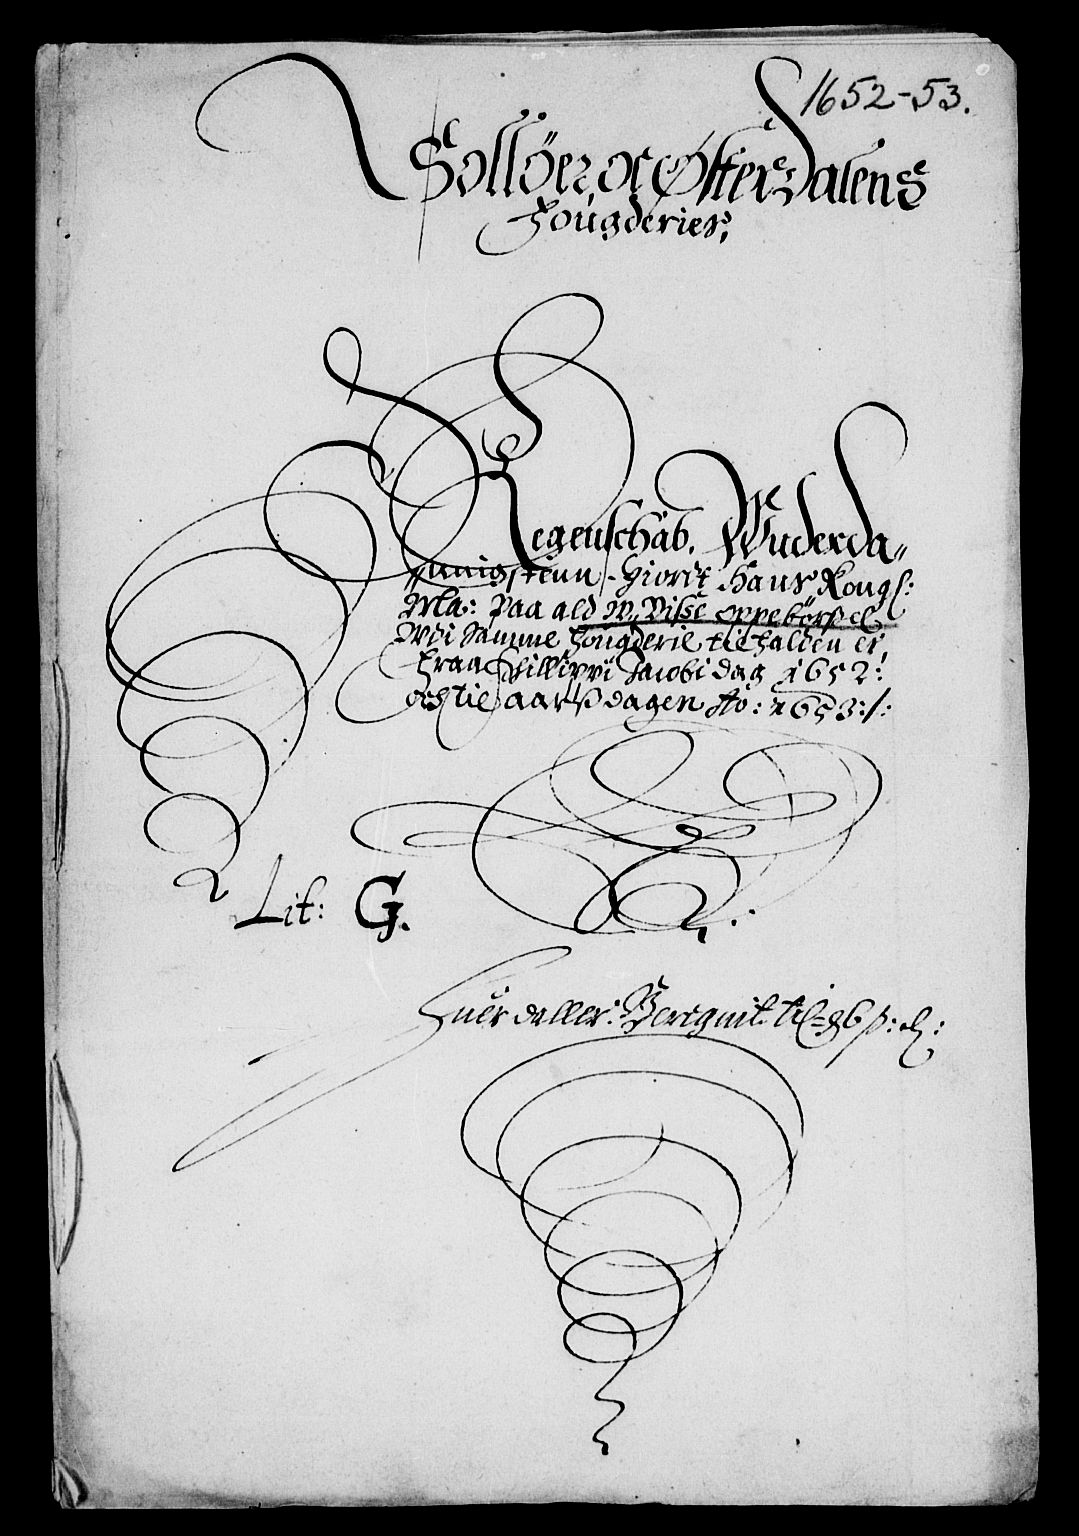 1652-53.
Sollöer oc Østerdalens
Fougderies;
Regenschab, Wnderda„
nnigstenn giordt Hans Kongl:
Ma: Paa ald w, Visse oppebörsel
Wdi Samme fougderie tilfalden er,
Fraa Phillippi Jacobi dag 1652:
och til aarß dagen Ao: 1653:/:
Lit: G.
Huer daller: Beregnit til 96 ß: d: